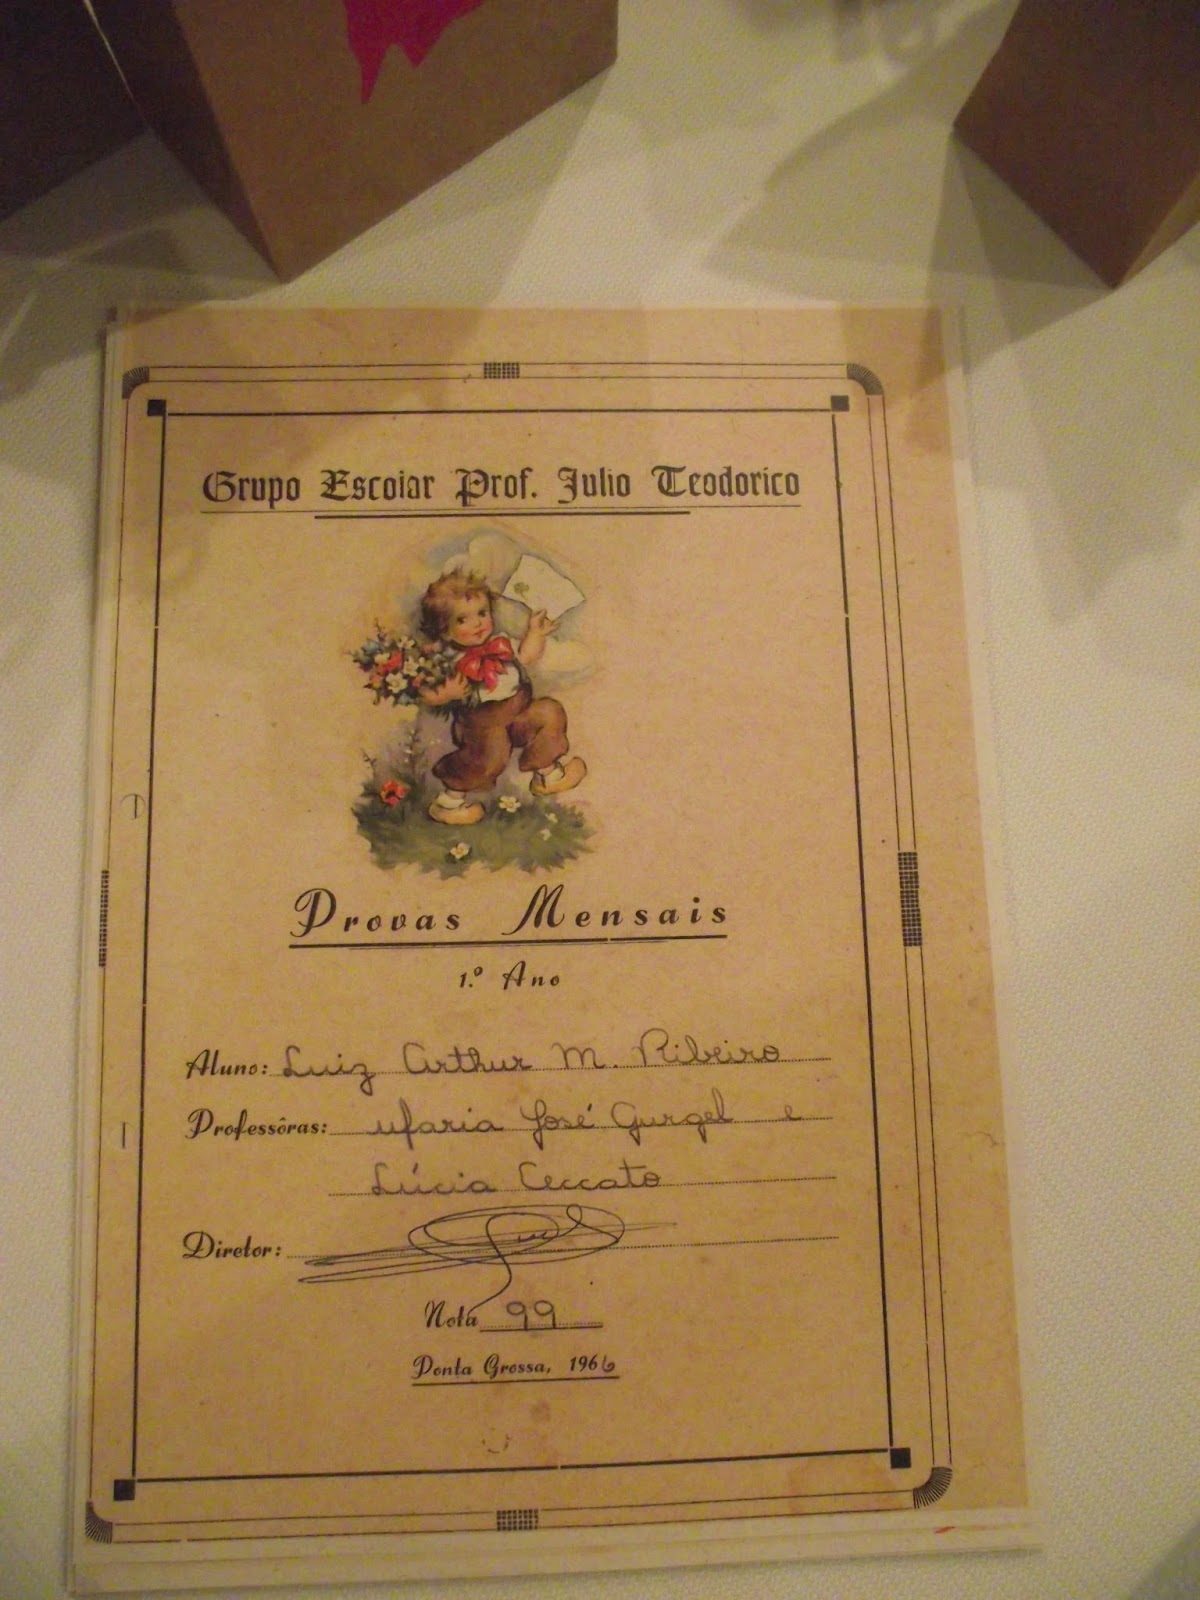 Grupo Escolar Prof. Julio Teodorico
Provas Mensais
1.º Ano
Aluno: Luiz Arthur M. Ribeiro
Professôras: Maria José Gurgel e
Lúcia Ceccato
Diretor:
Nota 99
Ponta Grossa, 1966